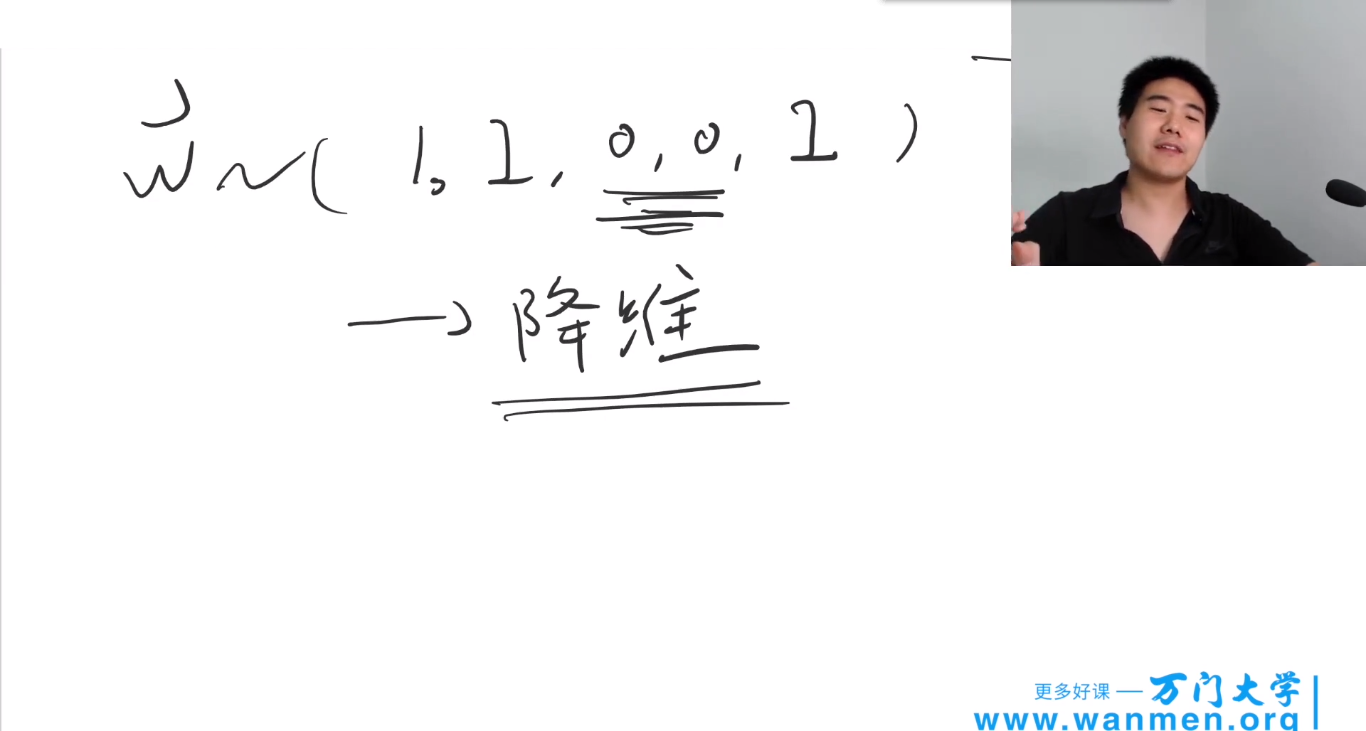 w ~ ( 1, 1, 0, 0, 1 )
→ 降维
更多好课 — 万门大学
www.wanmen.org